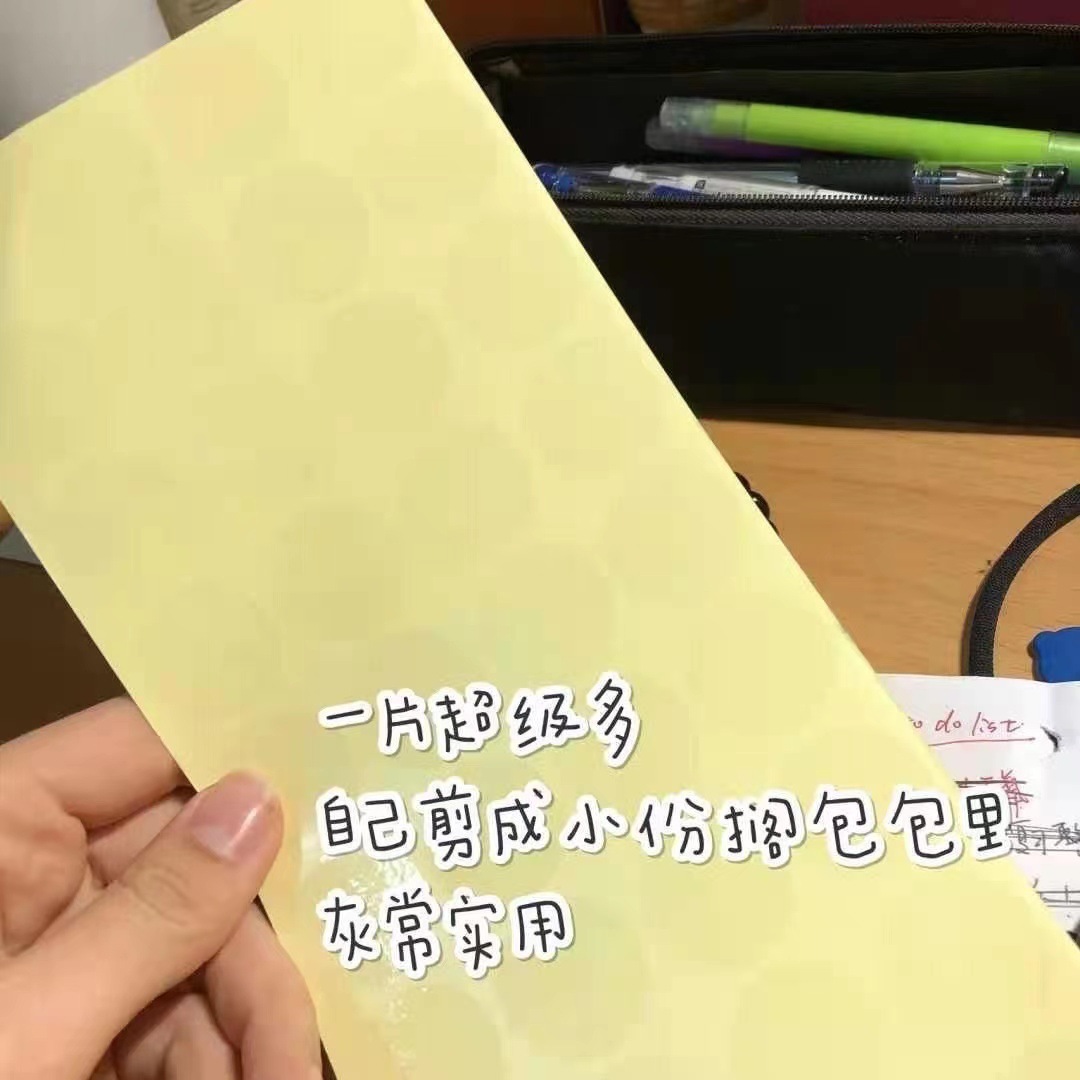 一片超级多
自己剪成小份搁包包里
灰常实用
do list